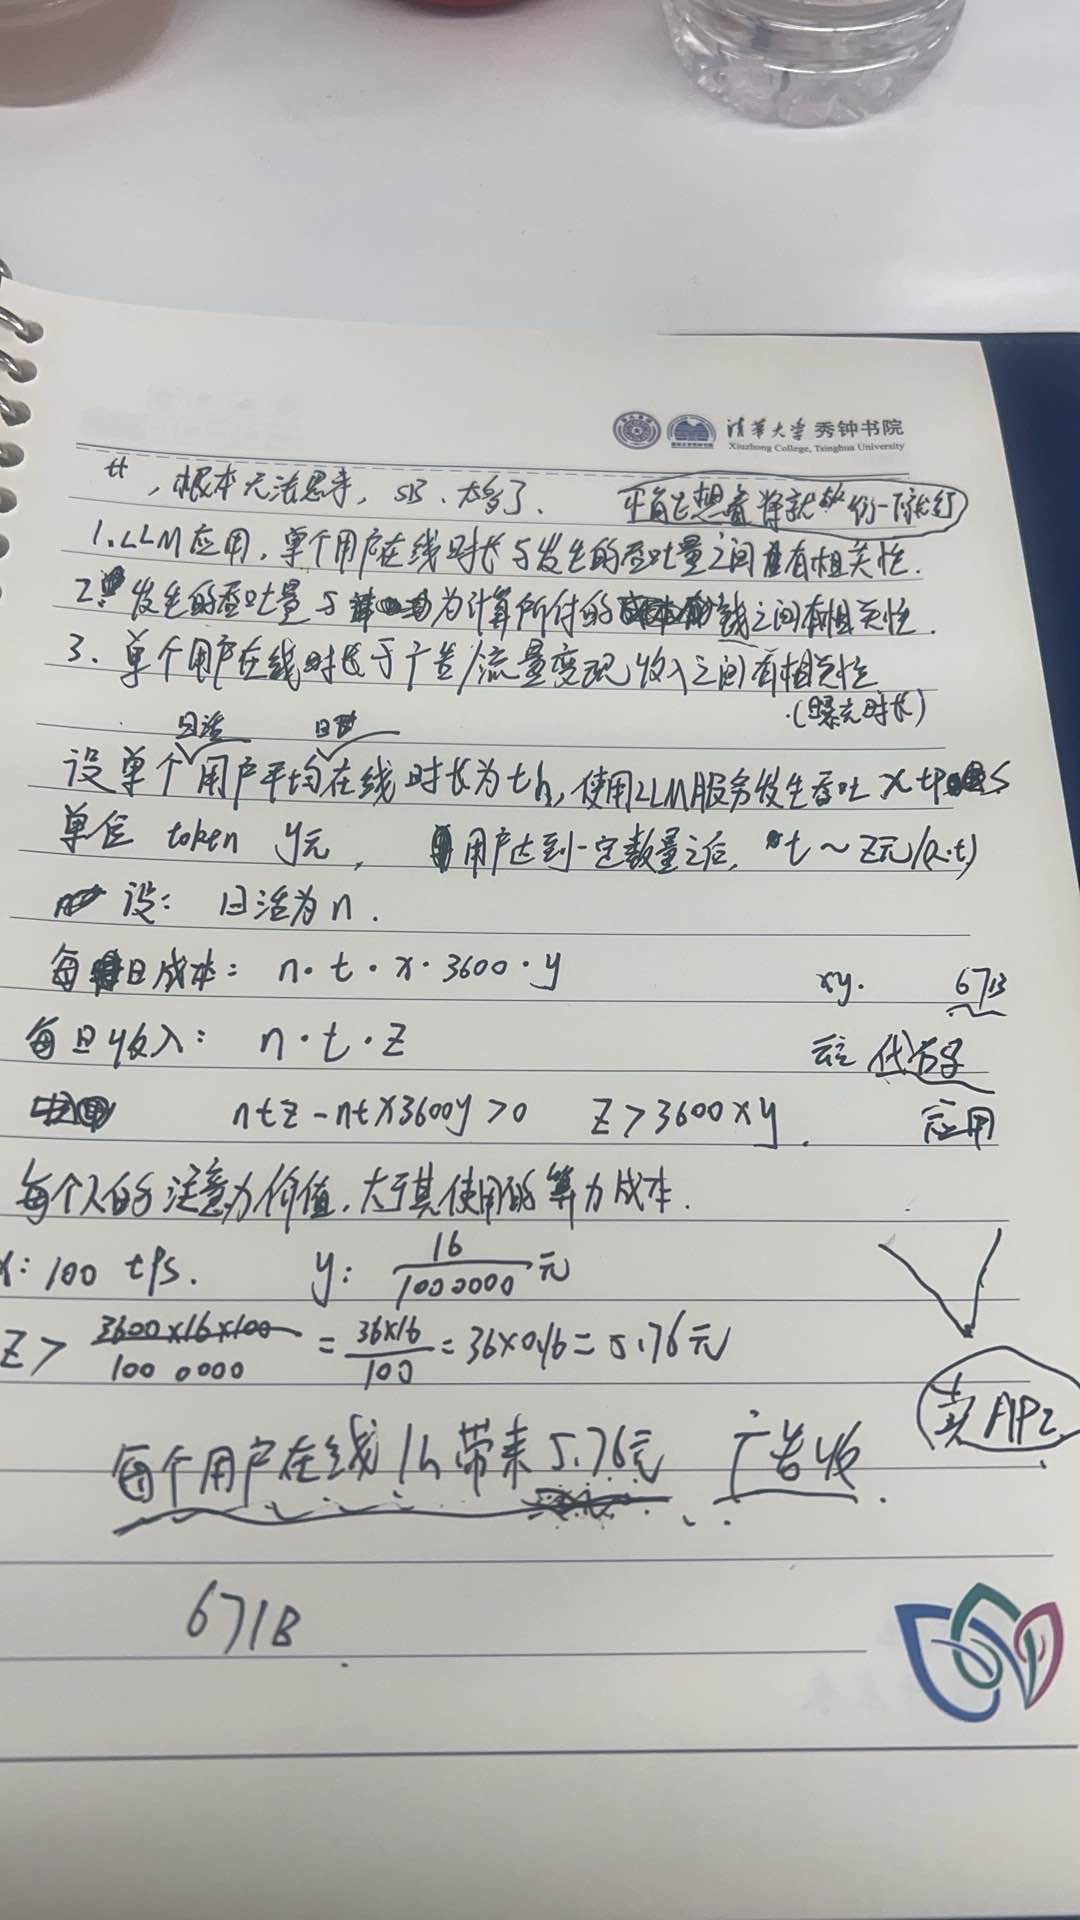 清华大学秀钟书院
Xiuzhong College, Tsinghua University
艹，根本无法思考，SB.太多了.
1.LLM应用，单个用户在线时长与发生的吞吐量之间有相关性.
2. 发生的吞吐量与为计算所付的钱之间有相关性.
3. 单个用户在线时长于广告/流量变现收入之间有相关性
(曝光时长)
日活 日
设单个用户平均在线时长为th, 使用LLM服务发生吞吐 x tps
单位 token y元, 用户达到一定数量之后, t ~ z元/(人·t)
设: 日活为n.
每日成本: n·t·x·3600·y xy. 671B
每日收入: n·t·z
ntz - ntx3600y > 0 z > 3600xy. 应用
每个人的注意力价值, 大于其使用的算力成本.
x: 100 tps. y: 16/1000000 元
z > 3600×16×100/1000000 = 36×16/100 = 36×0.16 = 5.76元
卖API
每个用户在线1h带来5.76元 广告收.
671B